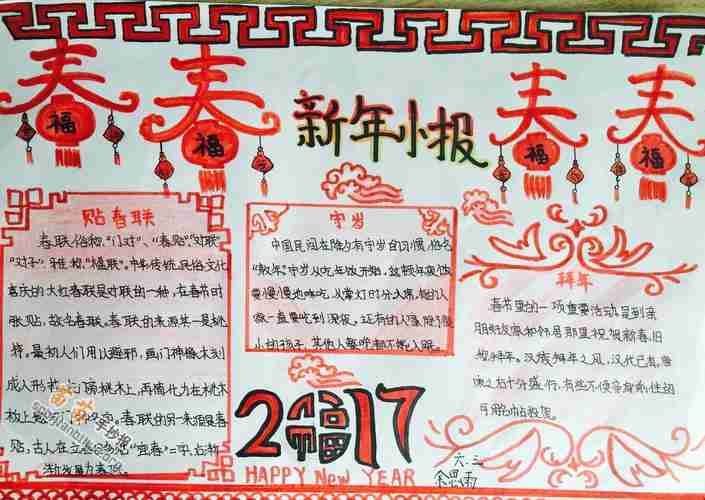 春 春 新年小报 春 春
福 福 福 福
贴春联
春联,俗称"门对"、"春贴""对联"
"对子",雅称"楹联"。中华传统民俗文化
喜庆的大红春联是对联的一种,在春节时
张贴,故名春联。春联的来源其一是桃
符。最初人们用以避邪,画门神像木刻
成人形挂 门旁桃木上,再简化为在桃木
板上题 门神名字。春联的另一来源是春
贴,古人在立春 "宜春"二字,后渐
渐发展为春联。
守岁
中国民间在除夕有守岁的习惯,俗名
"熬年"。守岁从吃年夜饭开始,这顿年夜饭
要慢慢地吃,从掌灯时分入席,有的人
家一直要吃到深夜。
拜年
春节里的一项重要活动,是到亲
朋好友家和邻居那里祝贺新春,旧
称拜年。汉族拜年之风,汉代已有。唐
宋之后十分盛行,有些不便亲身前往的
可用名帖投贺。
2福17
HAPPY NEW YEAR
六.三